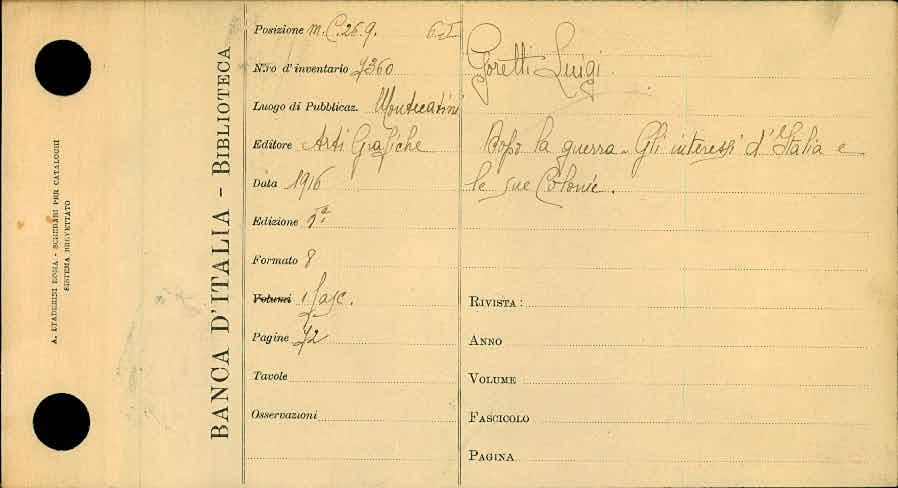 A. STADERINI ROMA - SCHEDARI PER CATALOGHI
SISTEMA BREVETTATO
BANCA D'ITALIA - BIBLIOTECA
Posizione m. C. 26. 9.
N.ro d'inventario 7360
Luogo di Pubblicaz. Montecatini
Editore Arti Grafiche
Data 1916
Edizione 1ª
Formato 8
Volumi 1 fasc.
Pagine 72
Tavole
Osservazioni
Goretti Luigi
Dopo la guerra - Gli interessi d'Italia e
le sue Colonie.
RIVISTA:
ANNO
VOLUME
FASCICOLO
PAGINA